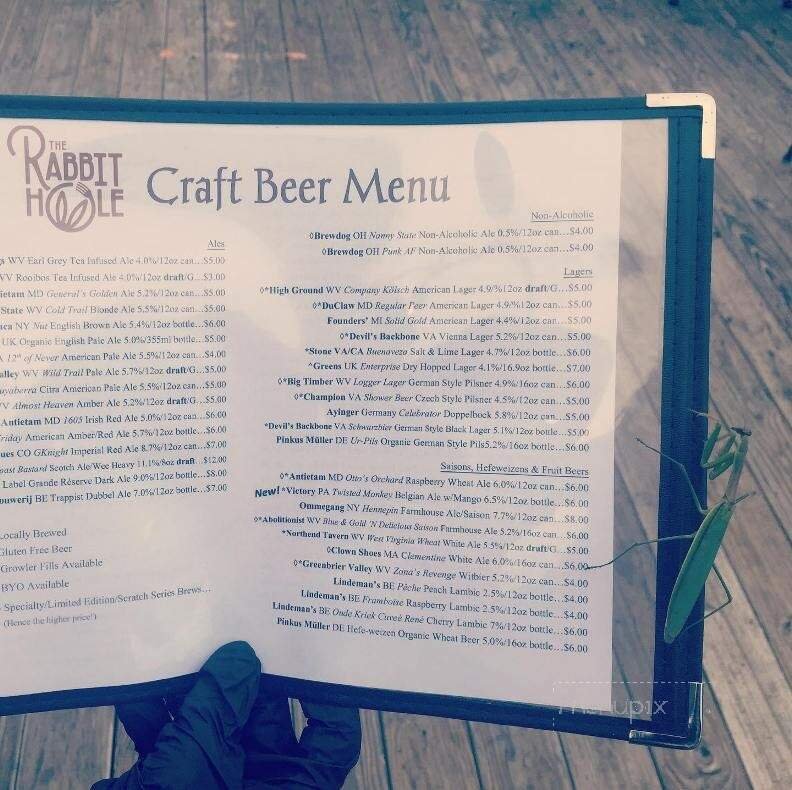 THE
RABBIT
HOLE
Craft Beer Menu
Ales
WV Earl Grey Tea Infused Ale 4.0%/12oz can...$5.00
WV Rooibos Tea Infused Ale 4.0%/12oz draft/G...$3.00
MD General's Golden Ale 5.2%/12oz can...$5.00
State WV Cold Trail Blonde Ale 5.5%/12oz can...$5.00
NY Nut English Brown Ale 5.4%/12oz bottle...$6.00
UK Organic English Pale Ale 5.0%/355ml bottle...$5.00
12th of Never American Pale Ale 5.5%/12oz can...$4.00
WV Wild Trail Pale Ale 5.7%/12oz draft/G...$5.00
Citra American Pale Ale 5.5%/12oz can...$5.00
Almost Heaven Amber Ale 5.2%/12oz draft/G...$5.00
Antietam MD 1605 Irish Red Ale 5.0%/12oz can...$6.00
American Amber/Red Ale 5.7%/12oz bottle...$6.00
CO GKnight Imperial Red Ale 8.7%/12oz can...$7.00
Bastard Scotch Ale/Wee Heavy 11.1%/8oz draft...$12.00
Label Grande Réserve Dark Ale 9.0%/12oz bottle...$8.00
BE Trappist Dubbel Ale 7.0%/12oz bottle...$7.00
Locally Brewed
Gluten Free Beer
Growler Fills Available
BYO Available
Specialty/Limited Edition/Scratch Series Brews...
(Hence the higher price!)
Non-Alcoholic
◊Brewdog OH Nanny State Non-Alcoholic Ale 0.5%/12oz can...$4.00
◊Brewdog OH Punk AF Non-Alcoholic Ale 0.5%/12oz can...$4.00
Lagers
◊*High Ground WV Company Kölsch American Lager 4.9/%12oz draft/G...$5.00
◊*DuClaw MD Regular Peer American Lager 4.9/%12oz can...$5.00
Founders' MI Solid Gold American Lager 4.4%/12oz can...$5.00
◊*Devil's Backbone VA Vienna Lager 5.2%/12oz can...$5.00
*Stone VA/CA Buenaveza Salt & Lime Lager 4.7%/12oz bottle...$6.00
^Greens UK Enterprise Dry Hopped Lager 4.1%/16.9oz bottle...$7.00
◊*Big Timber WV Logger Lager German Style Pilsner 4.9%/16oz can...$6.00
◊*Champion VA Shower Beer Czech Style Pilsner 4.5%/12oz can...$5.00
Ayinger Germany Celebrator Doppelbock 5.8%/12oz can...$5.00
*Devil's Backbone VA Schwarzbier German Style Black Lager 5.1%/12oz bottle...$5.00
Pinkus Müller DE Ur-Pils Organic German Style Pils5.2%/16oz bottle...$6.00
Saisons, Hefeweizens & Fruit Beers
◊*Antietam MD Otto's Orchard Raspberry Wheat Ale 6.0%/12oz can...$6.00
New! *Victory PA Twisted Monkey Belgian Ale w/Mango 6.5%/12oz bottle...$6.00
Ommegang NY Hennepin Farmhouse Ale/Saison 7.7%/12oz can...$8.00
◊*Abolitionist WV Blue & Gold 'N Delicious Saison Farmhouse Ale 5.2%/16oz can...$6.00
*Northend Tavern WV West Virginia Wheat White Ale 5.5%/12oz draft/G...$5.00
◊Clown Shoes MA Clementine White Ale 6.0%/16oz can...$6.00
◊*Greenbrier Valley WV Zona's Revenge Witbier 5.2%/12oz can...$4.00
Lindeman's BE Pêche Peach Lambic 2.5%/12oz bottle...$4.00
Lindeman's BE Framboise Raspberry Lambic 2.5%/12oz bottle...$4.00
Lindeman's BE Oude Kriek Cuveè Renè Cherry Lambic 7%/12oz bottle...$6.00
Pinkus Müller DE Hefe-weizen Organic Wheat Beer 5.0%/16oz bottle...$6.00
menupix